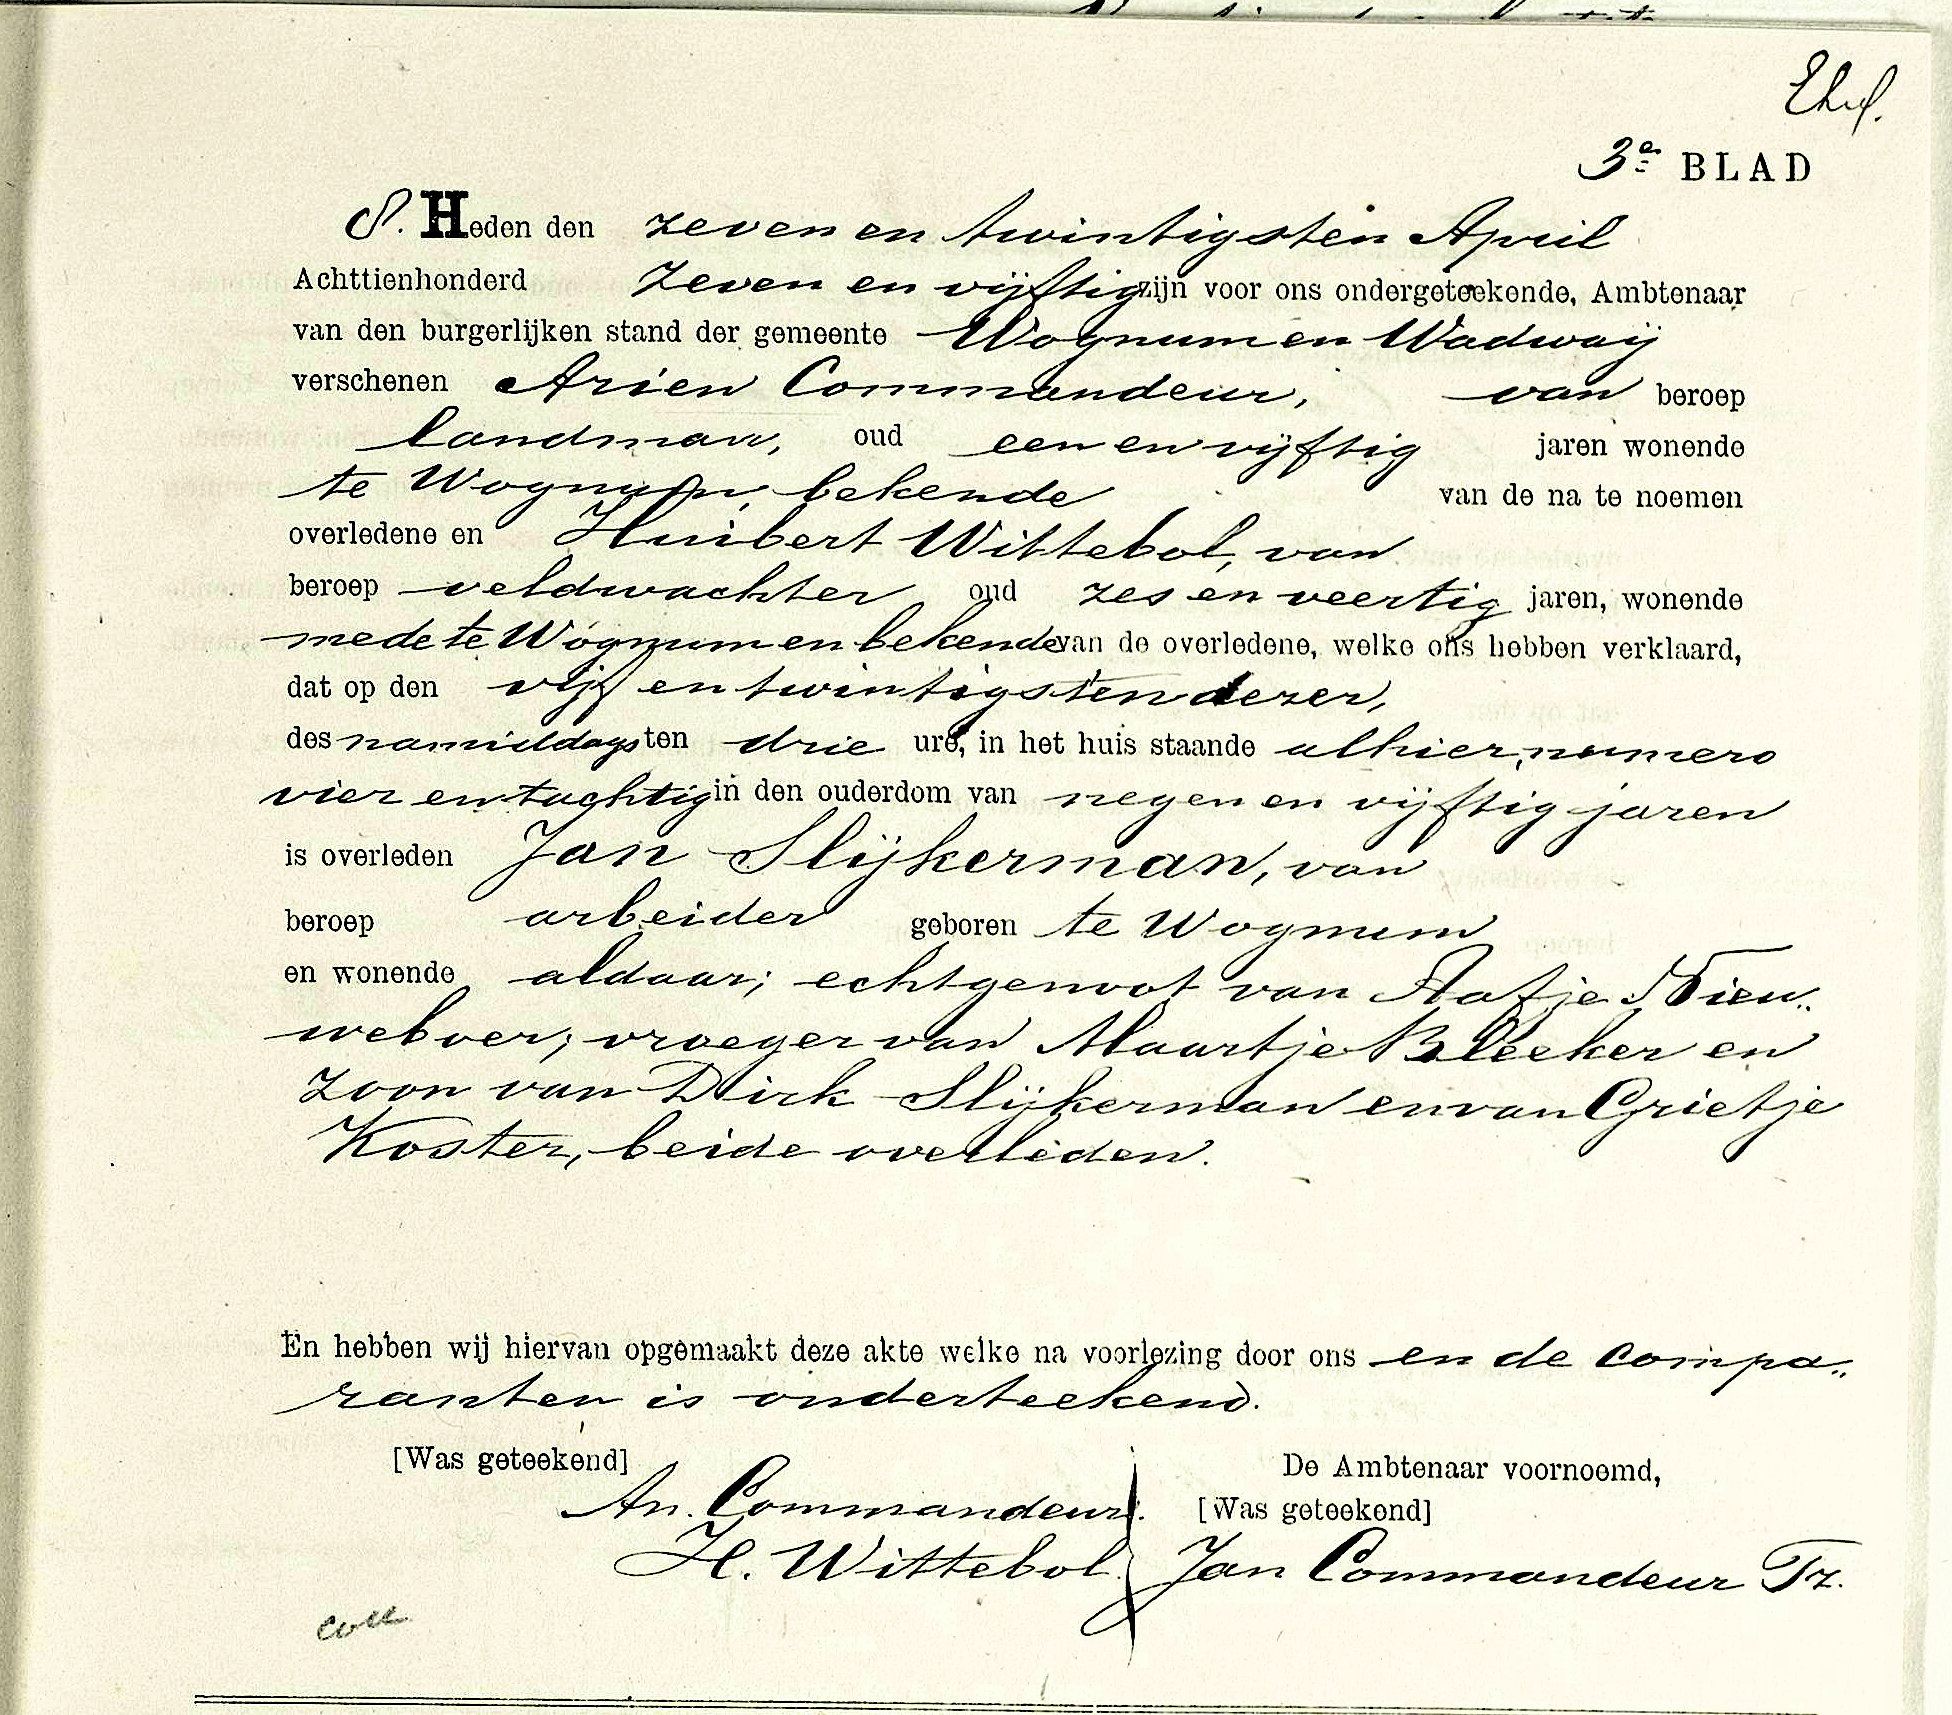 3e BLAD
8. Heden den zeven en twintigsten April
Achttienhonderd zeven en vijftig zijn voor ons ondergeteekende, Ambtenaar
van den burgerlijken stand der gemeente Wognum en Wadway
verschenen Arien Commandeur, van beroep
landman, oud een en vijftig jaren wonende
te Wognum, bekende van de na te noemen
overledene en Huibert Wittebol, van
beroep veldwachter oud zes en veertig jaren, wonende
mede te Wognum en bekende van de overledene, welke ons hebben verklaard,
dat op den vijf en twintigsten dezer,
des namiddags ten drie ure, in het huis staande alhier, numero
vier en tachtig in den ouderdom van negen en vijftig jaren
is overleden Jan Slijkerman, van
beroep arbeider geboren te Wognum
en wonende aldaar; echtgenoot van Aafje Nieu„
weboer; vroeger van Maartje Bleeker en
zoon van Dirk Slijkerman en van Grietje
Koster, beide overleden.
En hebben wij hiervan opgemaakt deze akte welke na voorlezing door ons en de compa„
ranten is onderteekend.
[Was geteekend] De Ambtenaar voornoemd,
An. Commandeur. [Was geteekend]
H. Wittebol. Jan Commandeur Tz.
coll